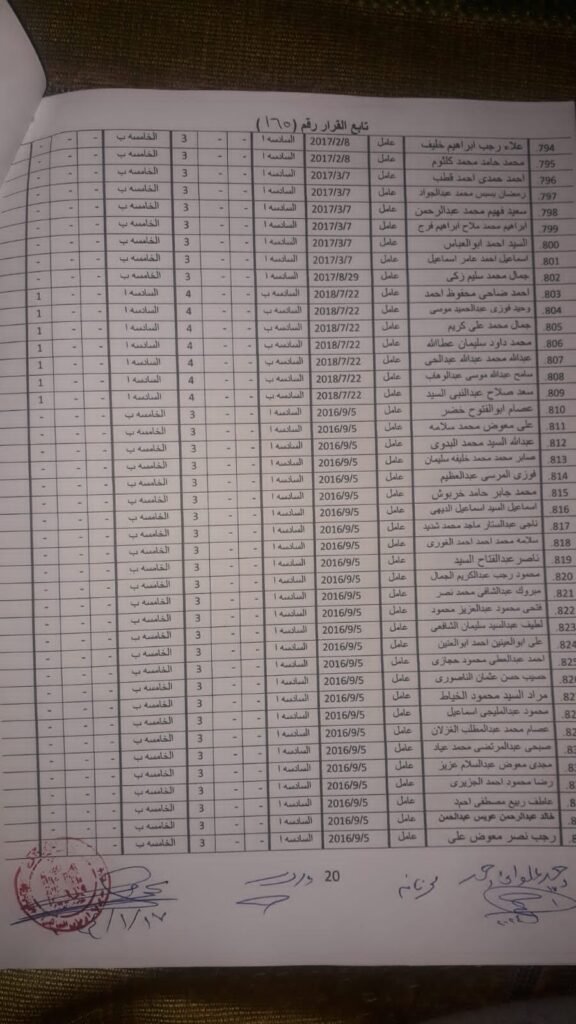 تابع القرار رقم (١٦٥)
794. علاء رجب ابراهيم خليف عامل 2017/2/8 السادسه ا - - 3 الخامسه ب - - -
795. محمد حامد محمد كلثوم عامل 2017/2/8 السادسه ا - - 3 الخامسه ب - - -
796. احمد حمدى احمد قطب عامل 2017/3/7 السادسه ا - - 3 الخامسه ب - - -
797. رمضان بسيس محمد عبدالجواد عامل 2017/3/7 السادسه ا - - 3 الخامسه ب - - -
798. سعيد فهيم محمد عبدالرحمن عامل 2017/3/7 السادسه ا - - 3 الخامسه ب - - -
799. ابراهيم محمد ملاح ابراهيم فرج عامل 2017/3/7 السادسه ا - - 3 الخامسه ب - - -
800. السيد احمد ابوالعباس عامل 2017/3/7 السادسه ا - - 3 الخامسه ب - - -
801. اسماعيل احمد عامر اسماعيل عامل 2017/3/7 السادسه ا - - 3 الخامسه ب - - -
802. جمال محمد سليم زكى عامل 2017/8/29 السادسه ا - - 3 الخامسه ب - - -
803. احمد ضاحى محفوظ احمد عامل 2018/7/22 السادسه ب - - 4 السادسه ا - - 1
804. وحيد فوزى عبدالحميد موسى عامل 2018/7/22 السادسه ب - - 4 السادسه ا - - 1
805. جمال محمد على كريم عامل 2018/7/22 السادسه ب - - 4 السادسه ا - - 1
806. محمد داود سليمان عطاالله عامل 2018/7/22 السادسه ب - - 4 السادسه ا - - 1
807. عبدالله محمد عبدالله عبدالحى عامل 2018/7/22 السادسه ب - - 4 السادسه ا - - 1
808. سامح عبدالله موسى عبدالوهاب عامل 2018/7/22 السادسه ب - - 4 السادسه ا - - 1
809. سعد صلاح عبدالنبى السيد عامل 2018/7/22 السادسه ب - - 4 السادسه ا - - 1
810. عصام ابوالفتوح خضر عامل 2016/9/5 السادسه ا - - 3 الخامسه ب - - -
811. على معوض محمد سلامه عامل 2016/9/5 السادسه ا - - 3 الخامسه ب - - -
812. عبدالله السيد محمد البدوى عامل 2016/9/5 السادسه ا - - 3 الخامسه ب - - -
813. صابر محمد محمد خليفه سليمان عامل 2016/9/5 السادسه ا - - 3 الخامسه ب - - -
814. فوزى المرسى عبدالعظيم عامل 2016/9/5 السادسه ا - - 3 الخامسه ب - - -
815. محمد جابر حامد خربوش عامل 2016/9/5 السادسه ا - - 3 الخامسه ب - - -
816. اسماعيل السيد اسماعيل الديهى عامل 2016/9/5 السادسه ا - - 3 الخامسه ب - - -
817. ناجى عبدالستار ماجد محمد شديد عامل 2016/9/5 السادسه ا - - 3 الخامسه ب - - -
818. سلامه محمد احمد احمد الغورى عامل 2016/9/5 السادسه ا - - 3 الخامسه ب - - -
819. ناصر عبدالفتاح السيد عامل 2016/9/5 السادسه ا - - 3 الخامسه ب - - -
820. محمود رجب عبدالكريم الجمال عامل 2016/9/5 السادسه ا - - 3 الخامسه ب - - -
821. مبروك عبدالشافى محمد نصر عامل 2016/9/5 السادسه ا - - 3 الخامسه ب - - -
822. فتحى محمود عبدالعزيز محمود عامل 2016/9/5 السادسه ا - - 3 الخامسه ب - - -
823. لطيف عبدالسيد سليمان الشافعى عامل 2016/9/5 السادسه ا - - 3 الخامسه ب - - -
824. على ابوالعينين احمد ابوالعنين عامل 2016/9/5 السادسه ا - - 3 الخامسه ب - - -
825 احمد عبدالعطى محمود حجازى عامل 2016/9/5 السادسه ا - - 3 الخامسه ب - - -
82 حسيب حسن عثمان الناصورى عامل 2016/9/5 السادسه ا - - 3 الخامسه ب - - -
82 مراد السيد محمود الخياط عامل 2016/9/5 السادسه ا - - 3 الخامسه ب - - -
82 محمود عبدالمليجى اسماعيل عامل 2016/9/5 السادسه ا - - 3 الخامسه ب - - -
82 عصام محمد عبدالمطلب الغزلان عامل 2016/9/5 السادسه ا - - 3 الخامسه ب - - -
8 صبحى عبدالمرتضى محمد عياد عامل 2016/9/5 السادسه ا - - 3 الخامسه ب - - -
8 مجدى معوض عبدالسلام عزيز عامل 2016/9/5 السادسه ا - - 3 الخامسه ب - - -
8 رضا محمود احمد الجزيرى عامل 2016/9/5 السادسه ا - - 3 الخامسه ب - - -
8 عاطف ربيع مصطفى احمد عامل 2016/9/5 السادسه ا - - 3 الخامسه ب - - -
8 خالد عبدالرحمن عويس عبدالحسن عامل 2016/9/5 السادسه ا - - 3 الخامسه ب - - -
8 رجب نصر معوض على عامل 2016/9/5 السادسه ا - - 3 الخامسه ب - - -
20